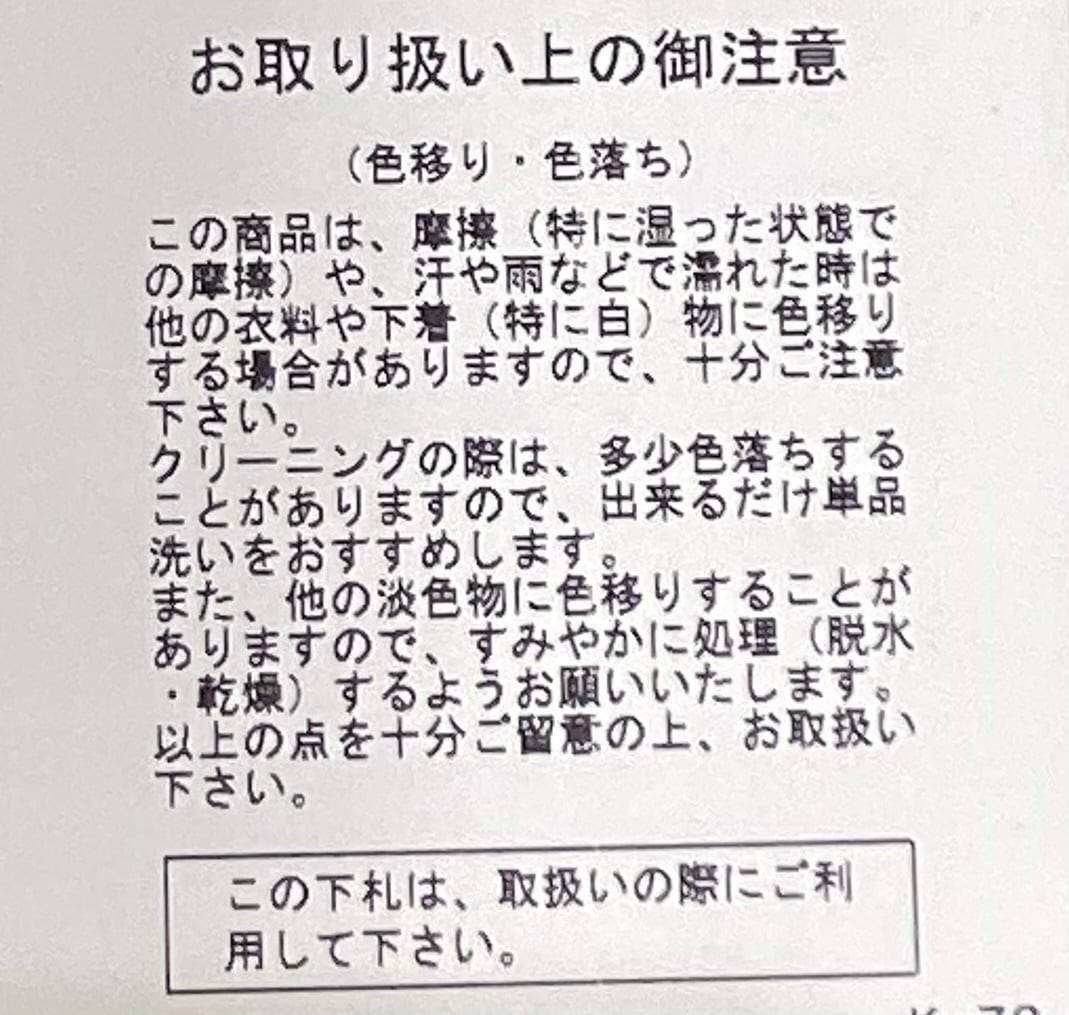 お取り扱い上の御注意
（色移り・色落ち）
この商品は、摩擦（特に湿った状態で
の摩擦）や、汗や雨などで濡れた時は
他の衣料や下着（特に白）物に色移り
する場合がありますので、十分ご注意
下さい。
クリーニングの際は、多少色落ちする
ことがありますので、出来るだけ単品
洗いをおすすめします。
また、他の淡色物に色移りすることが
ありますので、すみやかに処理（脱水
・乾燥）するようお願いいたします。
以上の点を十分ご留意の上、お取扱い
下さい。
この下札は、取扱いの際にご利
用して下さい。